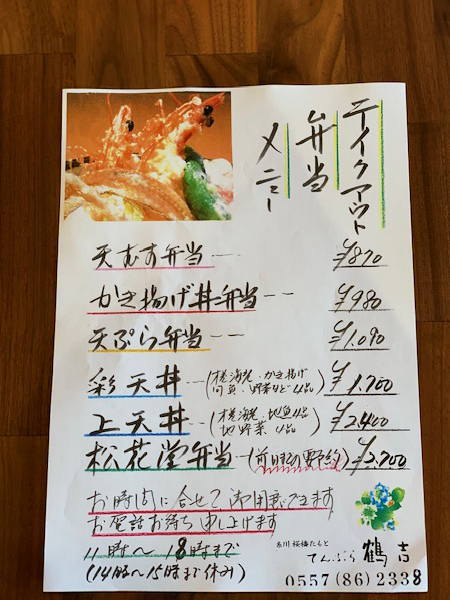 テイクアウト
弁当
メニュー
天むす弁当 ---- ¥810
かき揚げ丼弁当 -- ¥980
天ぷら弁当 --- ¥1.090
彩天丼 --(桜海老、かき揚げ
、野菜など 4品) ¥1.700
上天丼 --(桜海老、地魚4品
地野菜 4品) ¥2.400
松花堂弁当 -(前日迄の予約) ¥2.700
お時間に合せて 御用意できます
お電話お待ち申し上げます
11時〜18時まで
(14時〜15時まで休み)
糸川 桜橋たもと
てんぷら 鶴吉
0557(86)2338